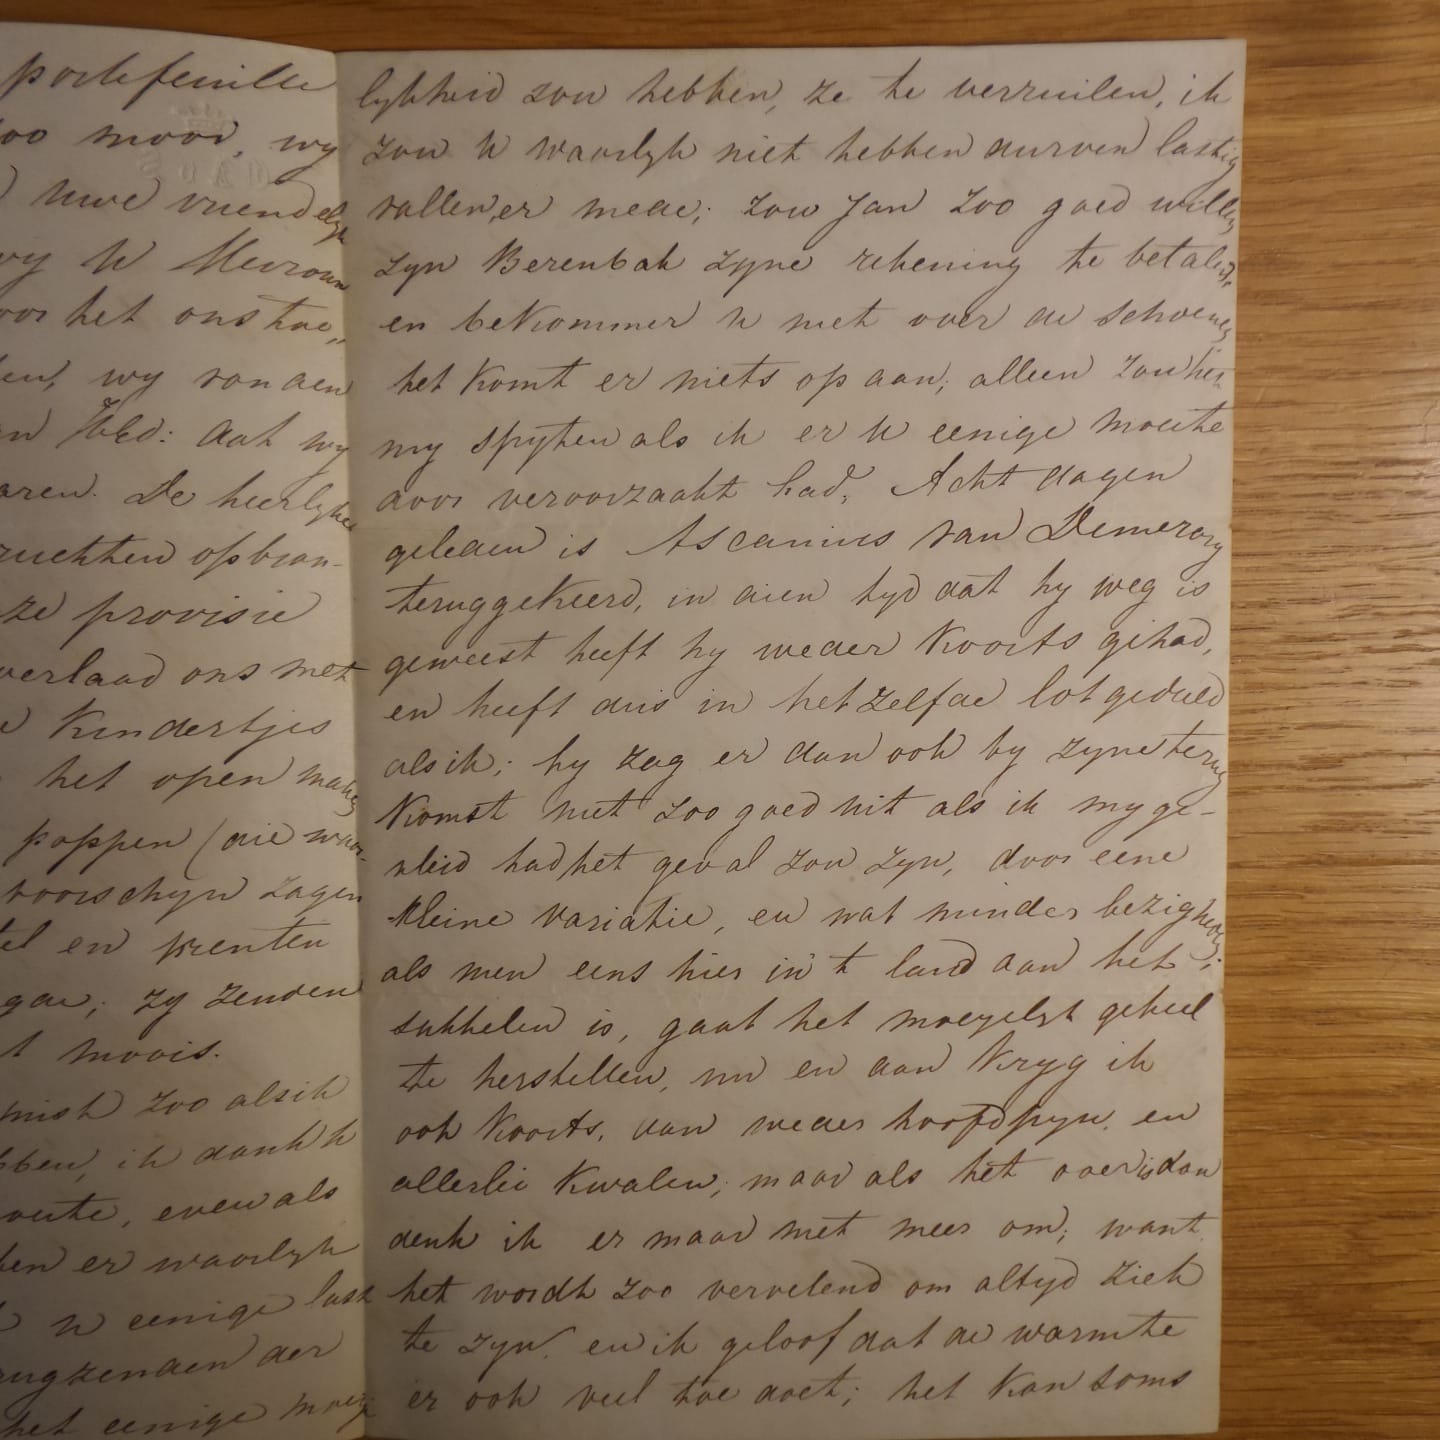 portefeuille
zoo mooi, wy
uwe vriendelyk
wy U Mevrouw
voor het ons toe„
wy vonden
UEd: dat wy
waren. De heerlyke
vruchten opbran-
onze provisie
overlaad ons met
Kindertjes
het open maken
poppen (die waar-
voorschyn zagen
en prenten
zy zenden
moois.
zoo als ik
hebben, ik dank U
moeite, even als
er waarlyk
U eenige last
terugzenden der
het eenige moeye
lykheid zou hebben, ze te verruilen, ik
zou U waarlyk niet hebben durven lastig
vallen, er mede; zou Jan zoo goed willen
zyn Berenbak zyne rekening te betalen,
en bekommer U niet over de schoenen,
het komt er niets op aan; alleen zou het
my spyten als ik er U eenige moeite
door veroorzaakt had. Acht dagen
geleden is Ascanius van Demerary
teruggekeerd, in dien tyd dat hy weg is
geweest heeft hy weder koorts gehad,
en heeft dus in het zelfde lot gedeeld
als ik; hy zag er dan ook by zyne terug
komst niet zoo goed uit als ik my ge-
vleid had het geval zou zyn, door eene
kleine variatie, en wat minder bezigheid;
als men eens hier in 't land aan het
sukkelen is, gaat het moeyelyk geheel
te herstellen, nu en dan kryg ik
ook koorts, dan weder hoofdpyn, en
allerlei kwalen; maar als het over is dan
denk ik er maar niet meer om; want
het wordt zoo vervelend om altyd ziek
te zyn. en ik geloof dat de warmte
er ook veel toe doet; het kan soms